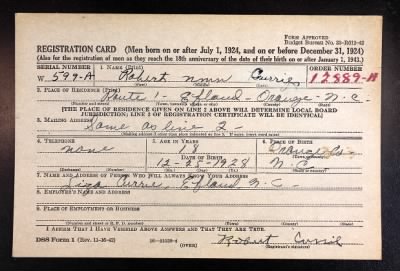 FORM APPROVED
Budget Bureau No. 33-R012-42
REGISTRATION CARD (Men born on or after July 1, 1924, and on or before December 31, 1924)
(Also for the registration of men as they reach the 18th anniversary of the date of their birth on or after January 1, 1943.)
SERIAL NUMBER 1. NAME (Print) ORDER NUMBER
W 599-A Robert nmn Currie 12889-A
2. PLACE OF RESIDENCE (Print)
Route 1 - Efland - Orange - N.C.
[THE PLACE OF RESIDENCE GIVEN ON LINE 2 ABOVE WILL DETERMINE LOCAL BOARD
JURISDICTION; LINE 2 OF REGISTRATION CERTIFICATE WILL BE IDENTICAL]
3. MAILING ADDRESS
Same as line 2 -
4. TELEPHONE 5. AGE IN YEARS 6. PLACE OF BIRTH
None 18 Orange Co
DATE OF BIRTH
12-25-1928 N.C.
7. NAME AND ADDRESS OF PERSON WHO WILL ALWAYS KNOW YOUR ADDRESS
Currie Efland N.C. -
8. EMPLOYER'S NAME AND ADDRESS
9. PLACE OF EMPLOYMENT OR BUSINESS
I AFFIRM THAT I HAVE VERIFIED ABOVE ANSWERS AND THAT THEY ARE TRUE.
DSS Form 1 (Rev. 11-16-42) (OVER) Robert
(Registrant's signature)